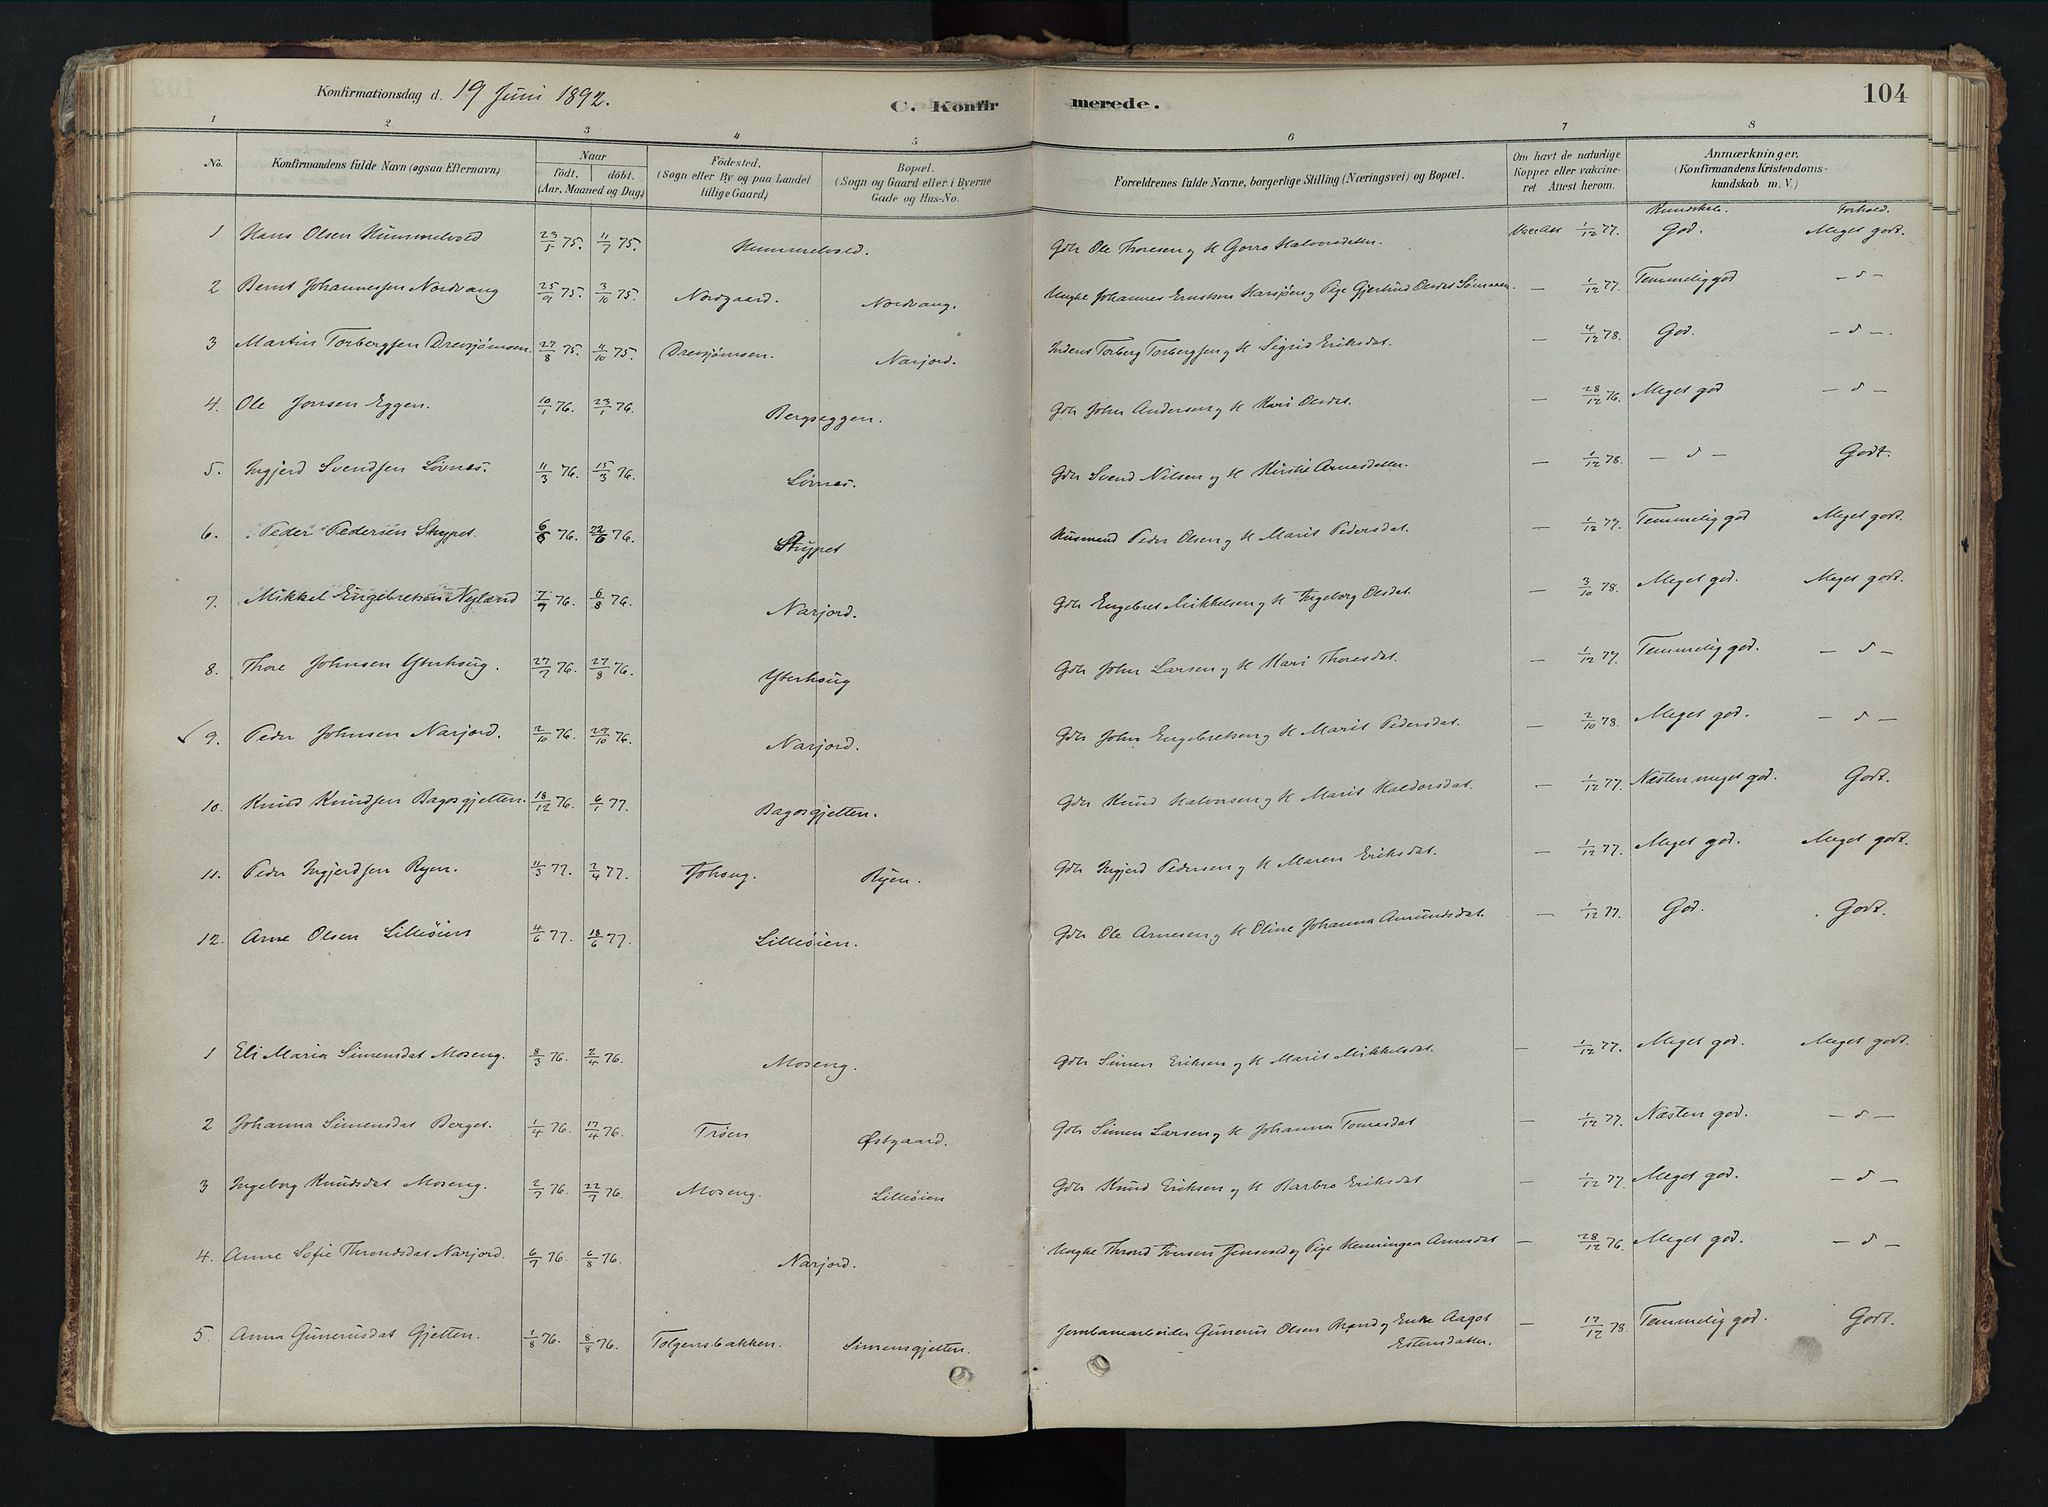 Konfirmationsdag d. 19 Juni 1892.
C. Konfirmerede.
104
1 2 3 4 5 6 7 8
No. Konfirmandens fulde Navn (ogsaa Efternavn) Naar født. døbt. (Aar, Maaned og Dag) Fødested. (Sogn eller By og paa Landet tillige Gaard) Bopæl. (Sogn og Gaard eller i Byerne Gade og Hus-No. Forældrenes fulde Navne, borgerlige Stilling (Næringsvei) og Bopæl. Om havt de naturlige Kopper eller vakcineret. Attest herom. Anmærkninger. (Konfirmandens Kristendomskundskab m. V.)
Kundskab. Forhold.
1 Hans Olsen Hummelvold 23/5 75. 11/7 75. Hummelvold. Gdr Ole Thoresen og H Gorro Halvorsdatter. 1/12 77. God. Meget godt.
2 Bernt Johannessen Nordvang 25/9 75. 3/10 75. Nordgaard. Nordvang. Ungke Johannes Erntsen og Pige Gjertrud Olsdat — 1/12 77. Temmelig god — d —
3 Martin Torbergsen Drevsjømoen. 27/8 75. 4/10 75. Drevsjømoen. Narjord. Inderst Torberg Torbergsen og H Sigrid Eriksdat. — 4/12 78. God. — d —.
4. Ole Jonsen Eggen. 10/1 76. 23/1 76. Bergseggen. Gdr John Andersen og H Kari Olsdat. — 28/12 76. Meget god — d —
5. Ingjerd Svendsen Lövnes. 11/3 76. 15/3 76. Lövnes. Gdr Svend Nilsen og H Kirsti Arnesdatter. — 1/12 78. — d — Godt.
6. Peder Pedersen Skypet. 6/6 76. 22/6 76. Skypet Husmand Peder Olsen og H Marit Pedersdat. — 1/12 79. Temmelig god Meget godt.
7. Mikkel Engebretsen Nyland 7/7 76. 6/8 76. Narjord. Gdr Engebret Mikkelsen og H Ingeborg Olsdat. — 3/10 78. Meget god. Meget godt.
8. Thore Johnsen Ytterhoug. 27/7 76. 27/8 76. Ytterhoug Gdr John Larsen og H Kari Thoresdat. — 1/12 79. Temmelig god. — d —
9. Peder Johnsen Narjord. 2/10 76. 29/10 76. Narjord. Gdr John Engebretsen og H Marit Pedersdat. — 2/10 78. Meget god. — d —
10. Knud Knudsen Bagosgjetten. 18/12 76. 6/1 77. Bagosgjetten. Gdr Knud Halvorsen og H Marit Haldorsdat. — 1/12 77. Næsten meget god. Godt.
11. Peder Ingjerdsen Ryen. 11/3 77. 2/4 77. Ryen. Gdr Ingjerd Pedersen og H Maren Eriksdat. — 1/12 77. Meget god. Meget godt.
12. Arne Olsen Lilleöien 4/6 77. 18/6 77. Lilleöien. Gdr Ole Arnesen og H Oline Johanna Amundsdat. — 1/12 77. God. Godt.
1 Eli Maria Simensdat Moseng. 8/3 76. 2/4 76. Moseng. Gdr Simen Eriksen og H Marit Mikkelsdat. — 1/12 77. Meget god. Meget godt.
2 Johanna Simensdat Berget. 1/4 76. 17/4 76. Tröen Østgaard. Gdr Simen Larsen og H Johanna Tomasdat — 1/12 77. Næsten god. — d —
3 Ingeborg Knudsdat Moseng. 2/7 76. 22/7 76. Moseng. Lilleöien Gdr Knud Eriksen og H Barbro Eriksdat — 1/12 77. Meget god. — d —
4. Anne Sofie Throndsdat Narjord. 6/7 76. 6/8 76. Narjord. Ungke Thrond Iversen og Pige Henningea Arnesdat — 28/12 76. Meget god. — d —
5. Anna Gunerusdat Gjetten. 1/8 76. 8/8 76. Tolgensbakken. Simensgjetten. Jernbanearbeider Gunerus Olsen Brand og Enke Aagot — 17/12 78. Temmelig god. Godt.
Estensdatter.